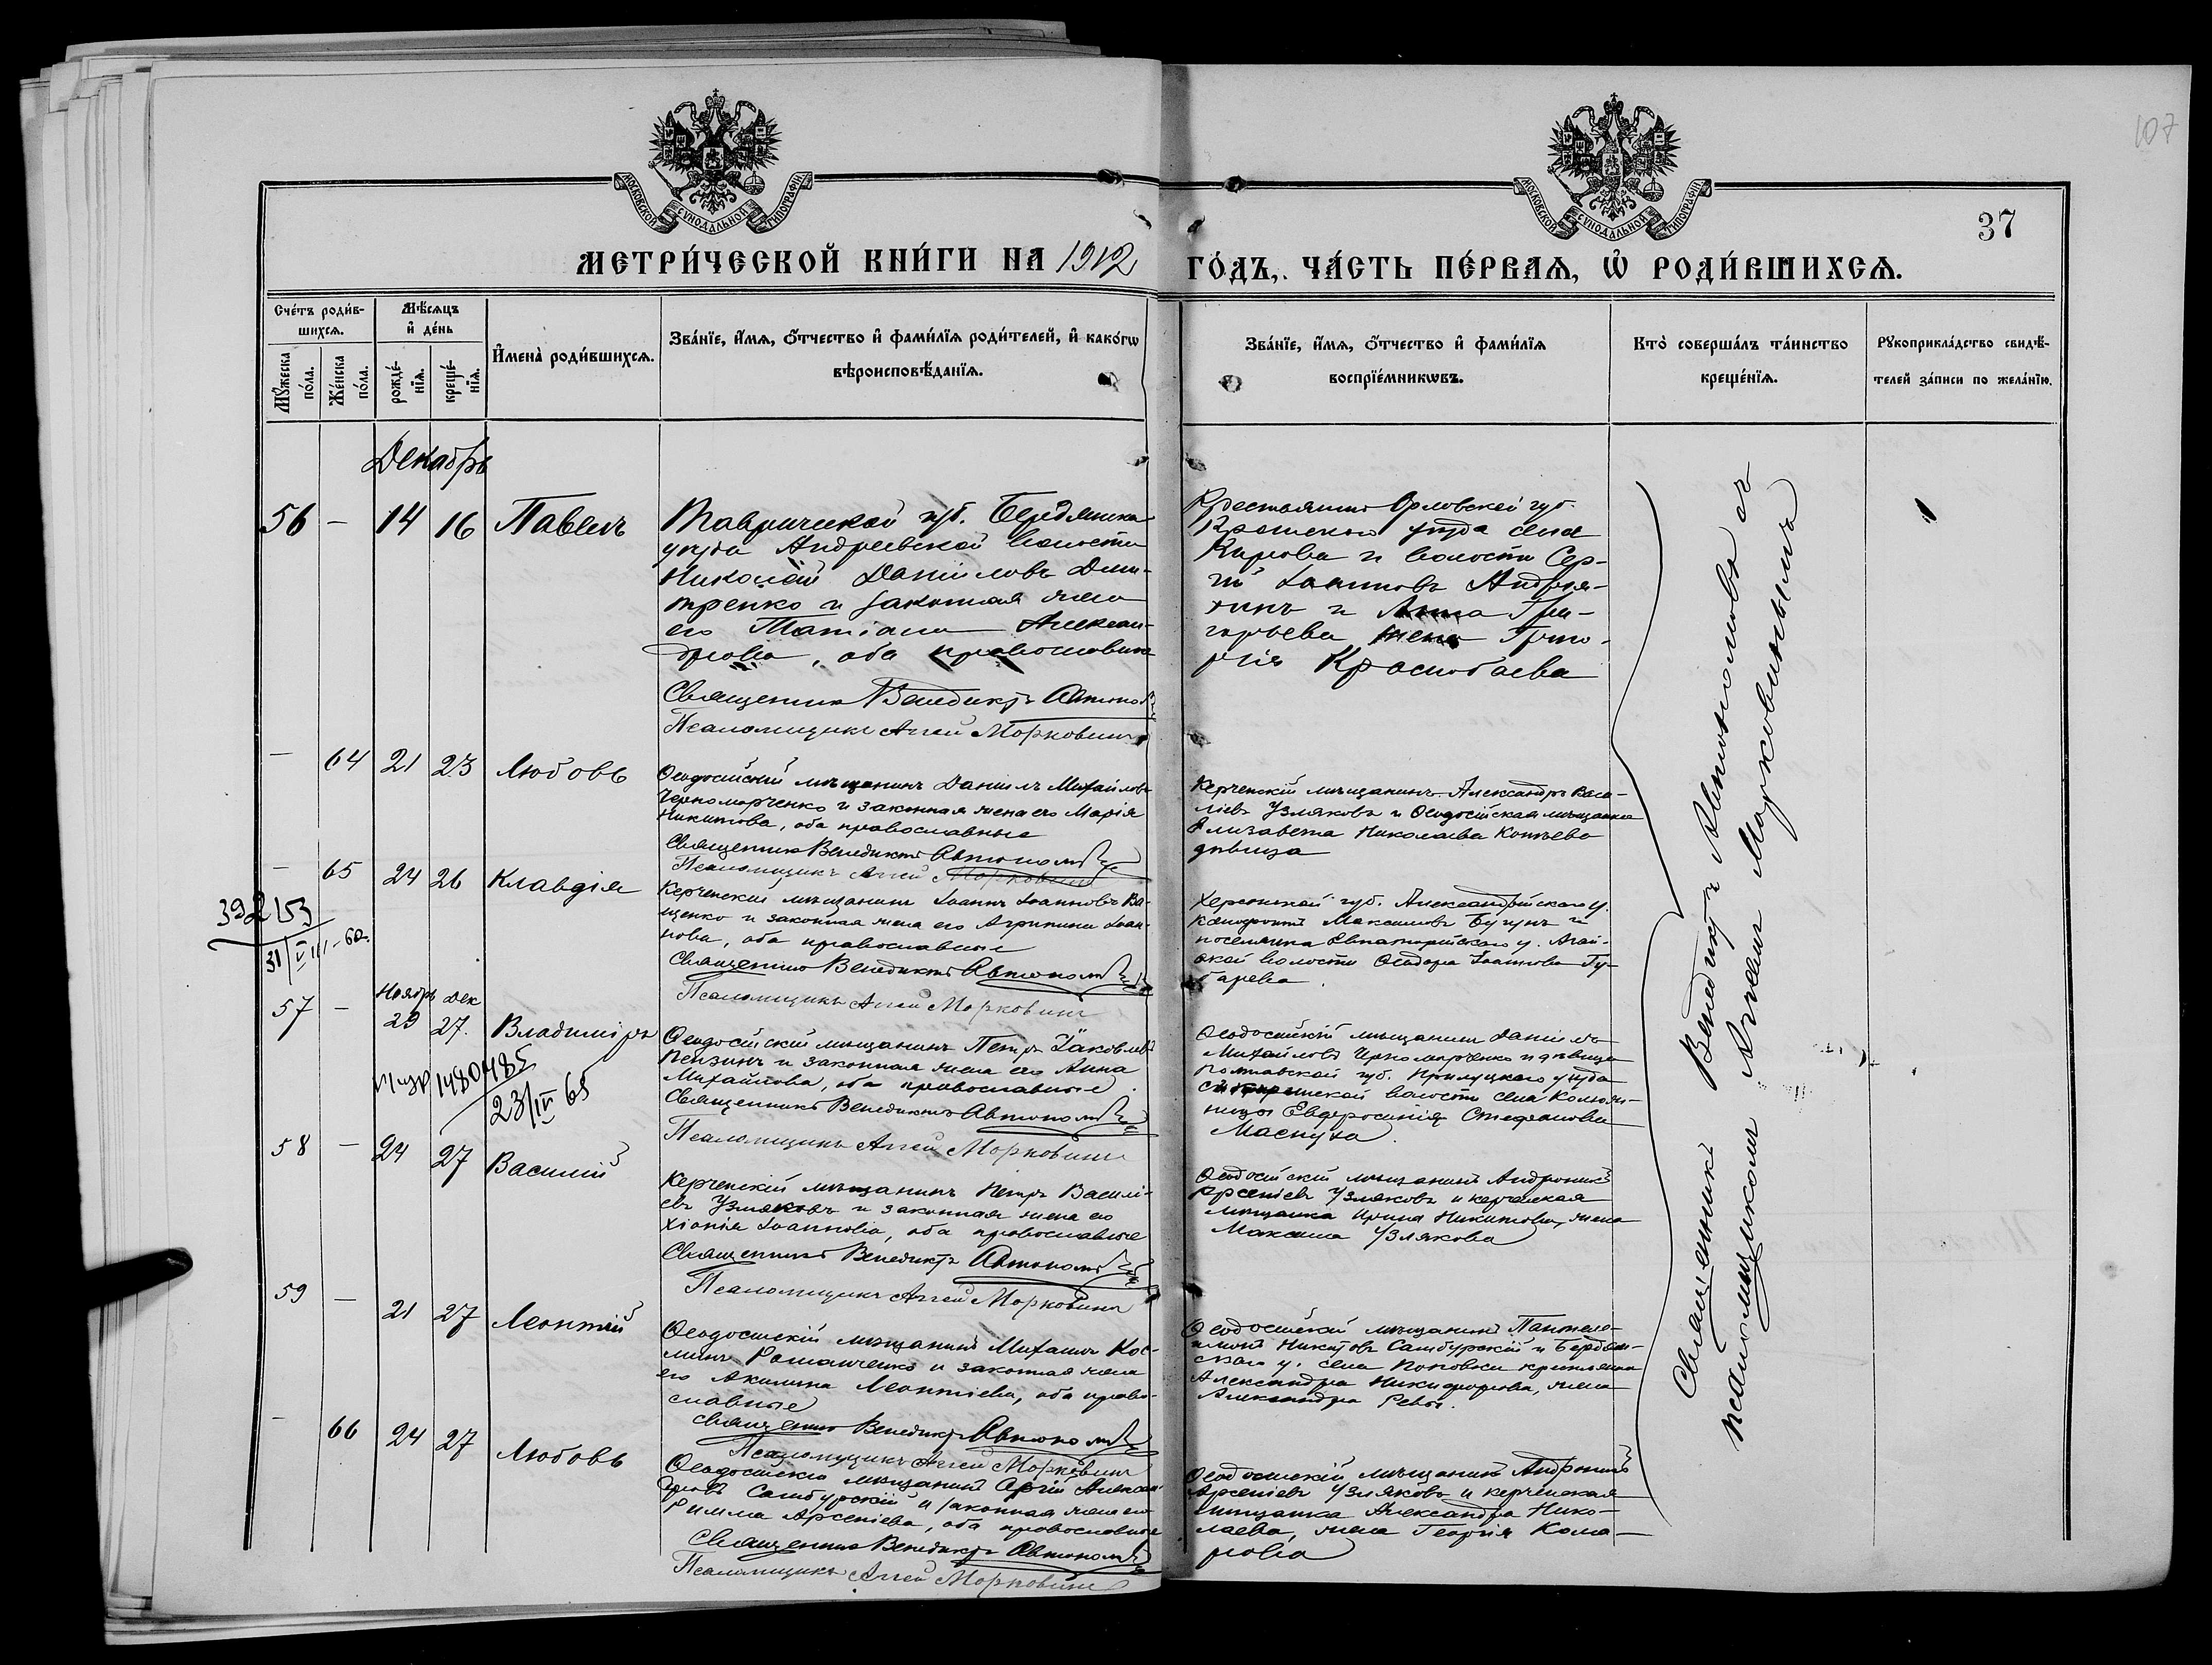 107
МОСКОВСКОЙ СѴНОДАЛЬНОЙ ТИПОГРАФІИ
МОСКОВСКОЙ СѴНОДАЛЬНОЙ ТИПОГРАФІИ
37
МЕТРИ́ЧЕСКОЙ КНИ́ГИ НА 1912 ГО́ДЪ, ЧА́СТЬ ПЕ́РВАѦ, Ѡ РОДИ́ВШИХСѦ.
Сче́тъ роди́в-
шихсѧ.
Мꙋ́жеска по́ла.
Же́нска по́ла.
Мѣ́сѧцъ
и҆ де́нь
рожде́-
нїѧ.
креще́-
нїѧ.
И҆мена̀ роди́вшихсѧ.
Зва́нїе, и҆́мѧ, о҆́тчество и҆ фами́лїѧ роди́телей, и҆ како́гѡ
вѣроисповѣ́данїѧ.
Зва́нїе, и҆́мѧ, о҆́тчество и҆ фами́лїѧ
воспрїе́мникѡвъ.
Кто̀ соверша́лъ та́инство
креще́нїѧ.
Рꙋкоприкла́дство свидѣ́-
телей за́писи по жела́нїю.
Декабрь
56 — 14 16 Павелъ
Таврической губ. Бердянска
уѣзда Андреевской волости
Николай Даніиловъ Дми-
тренко и законная жена
его Татіана Алексан-
дрова, оба православные
Священникъ Венедиктъ Автономовъ
Псаломщикъ Аггей Морковинъ
Крестьянинъ Орловской губ.
уѣзда села
и волости Сер-
гій Іоанновъ
и Анна Гри-
горьева жена Григо-
рія Краснобаева
— 64 21 23 Любовь
Ѳеодосійскій мѣщанинъ Даніилъ Михайловъ
Черноморченко и законная жена его Марія
Никитова, оба православные
Священникъ Венедиктъ Автономовъ
Псаломщикъ Аггей Морковинъ
Керченскій мѣщанинъ Александръ Васи-
ліевъ Узляковъ и Ѳеодосійская мѣщанка
Елизавета Николаева
дѣвица
— 65 24 26 Клавдія
Керченскій мѣщанинъ Іоаннъ Іоанновъ Ва-
щенко и законная жена его Агрипина Іоан-
нова, оба православные
Священникъ Венедиктъ Автономовъ
Псаломщикъ Аггей Морковинъ
Херсонской губ. Александрійскаго у.
Ксенофонтъ Максимовъ Бугунъ и
поселянка Евпаторійскаго у. Агай-
ской волости Ѳеодора Іоаннова Гу-
барева
392153
31/VIII-60
57 — Ноябрь 29 Дек 27. Владиміръ
1480485
23/IV 65
Ѳеодосійскій мѣщанинъ Петръ Іаковлевъ
Пензинъ и законная жена его Анна
Михайлова, оба православные.
Священникъ Венедиктъ Автономовъ
Псаломщикъ Аггей Морковинъ
Ѳеодосійскій мѣщанинъ Даніилъ
Михайловъ Черноморченко и дѣвица
Полтавской губ. Прилуцкаго уѣзда
волости села
Евфросинія Стефанова
Маснуха.
58 — 24 27 Василій
Керченскій мѣщанинъ Петръ Василі-
евъ Узляковъ и законная жена его
Хіонія Іоаннова, оба православные
Священникъ Венедиктъ Автономовъ
Псаломщикъ Аггей Морковинъ
Ѳеодосійскій мѣщанинъ Андроникъ
Арсеніевъ Узляковъ и керченская
мѣщанка Ирина Никитова, жена
Максима Узлякова
59 — 21 27 Леонтій
Ѳеодосійскій мѣщанинъ Михаилъ Кос-
минъ Романченко и законная жена
его Акилина Леонтіева, оба право-
славные
Священникъ Венедиктъ Автономовъ
Псаломщикъ Аггей Морковинъ
Ѳеодосійскій мѣщанинъ Пантеле-
имонъ Никитовъ Самбурскій и Бердян-
скаго у. села Поповки крестьянка
Александра Никифорова, жена
Александра Ревы.
— 66 24 27 Любовь
Ѳеодосійскій мѣщанинъ Сергій Алексан-
дровъ Самбурскій и законная жена его
Римма Арсеніева, оба православные
Священникъ Венедиктъ Автономовъ
Псаломщикъ Аггей Морковинъ
Ѳеодосійскій мѣщанинъ Андроникъ
Арсеніевъ Узляковъ и керченская
мѣщанка Александра Нико-
лаева, жена Георгія Кома-
рова
Священникъ Венедиктъ Автономовъ съ
псаломщикомъ Аггеемъ Морковинымъ